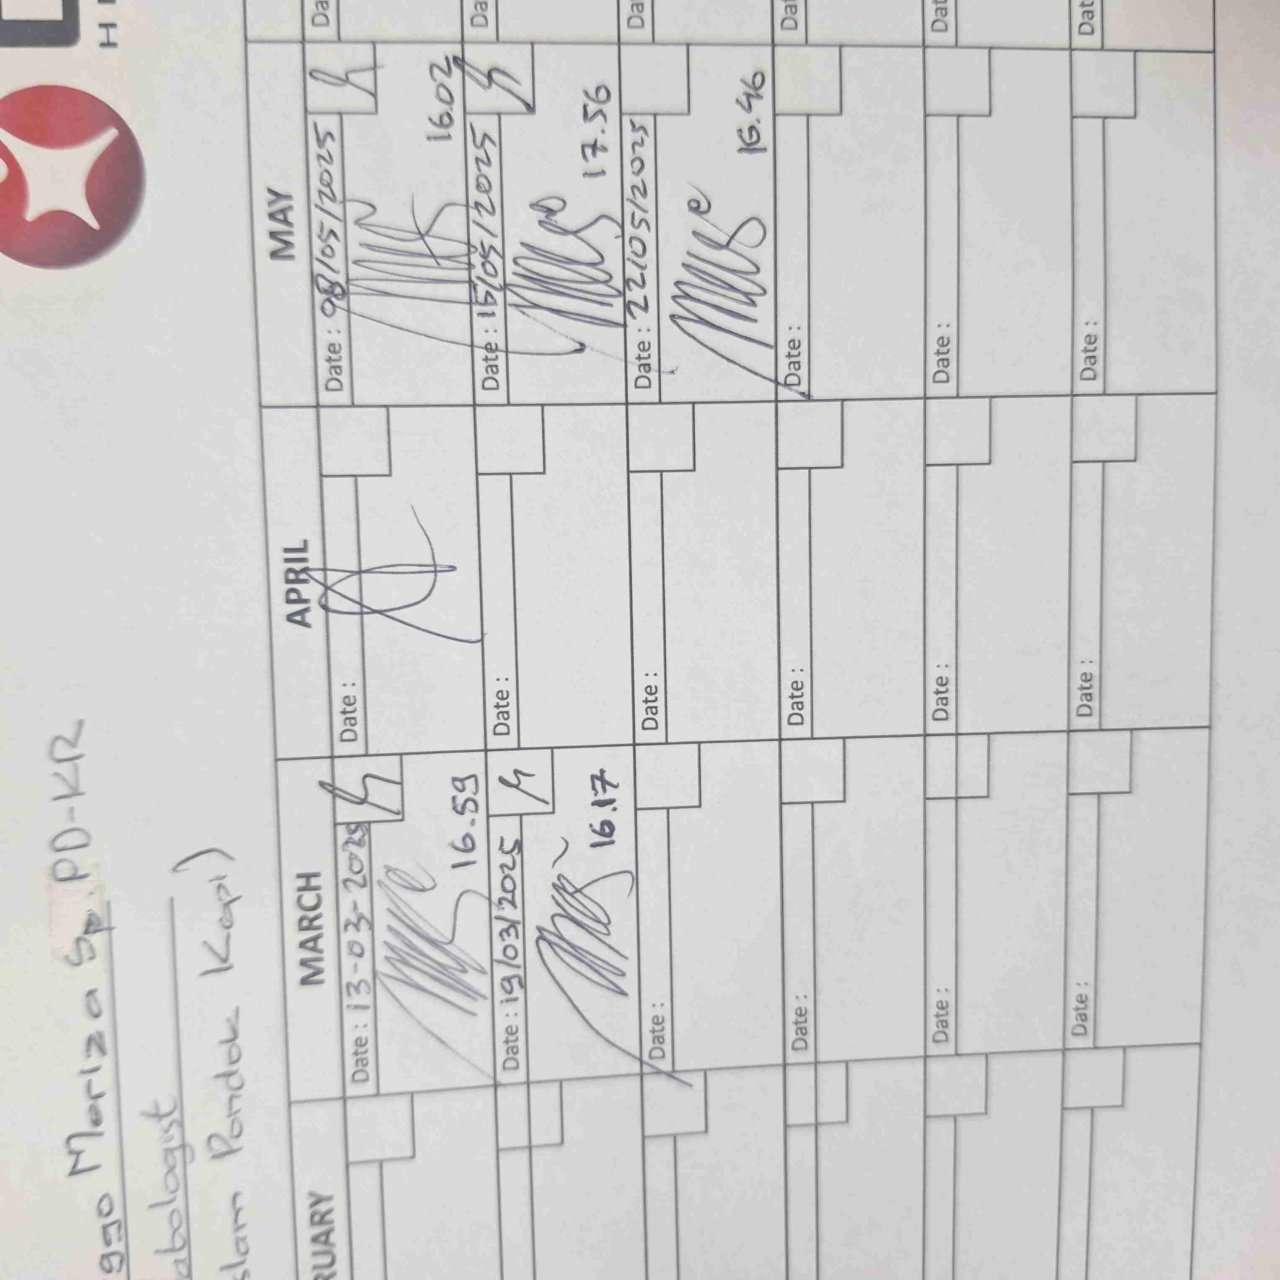 ggo Moriza Sp.PD-KR
abologist
slam Pondok Kopi)
RUARY
MARCH
APRIL
MAY
Date : 13-03-2025
16.59
Date :
Date : 08/05/2025
16.02
Date : 19/03/2025
16.17
Date :
Date : 15/05/2025
17.56
Date :
Date :
Date : 22/05/2025
16.46
Date :
Date :
Date :
Date :
Date :
Date :
Date :
Date :
Date :
Da
Da
Dat
Dat
Dat
Dat